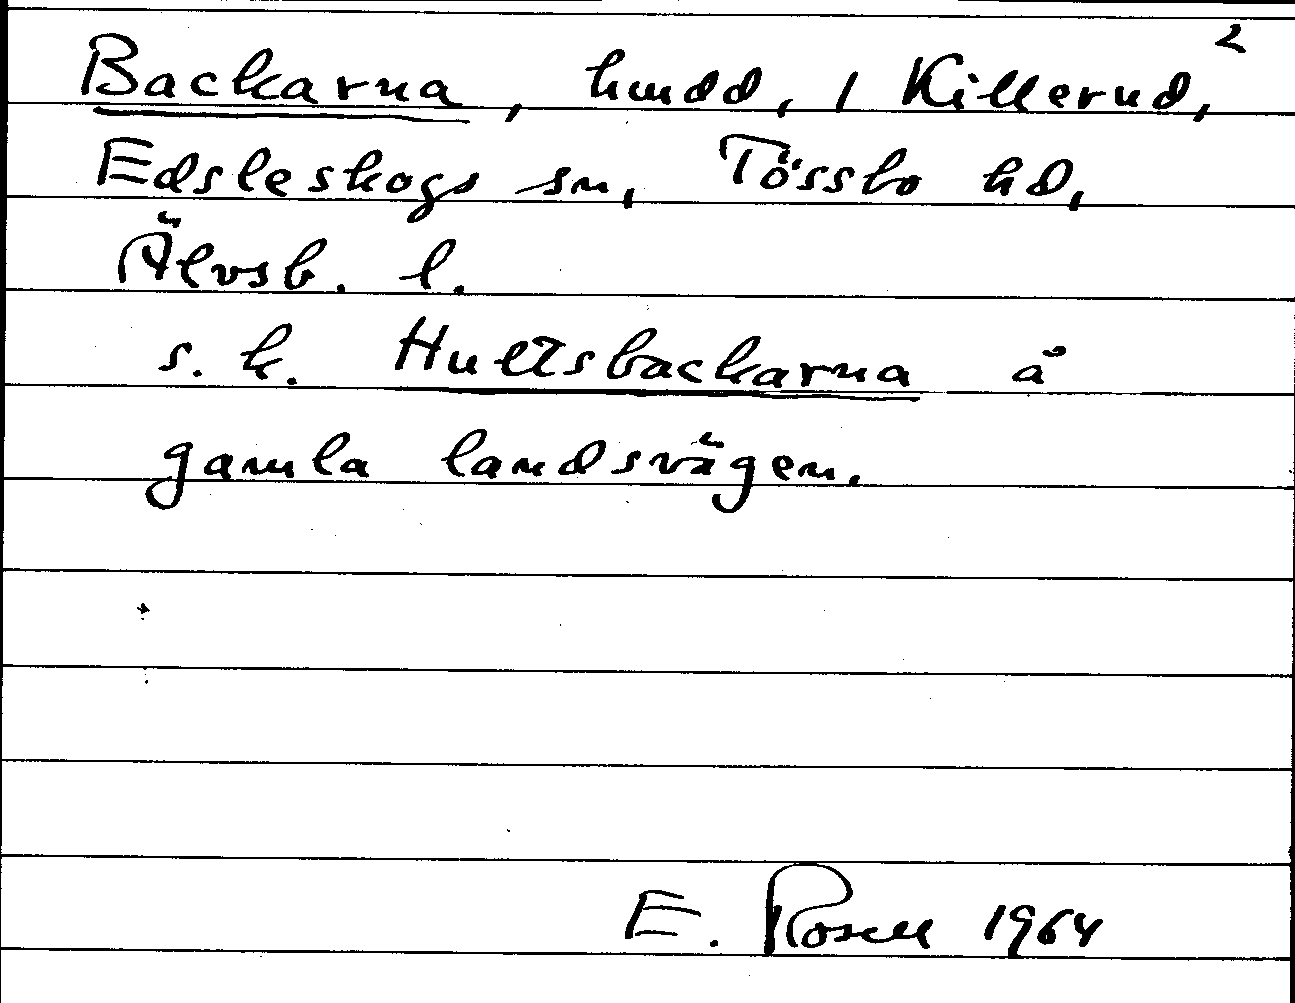 Backarna, hmdd, 1 Killerud, 2
Edsleskogs sn, Tössbo hd,
Älvsb. l.
s. k. Hultsbackarna å
gamla landsvägen.
E. Rosell 1964